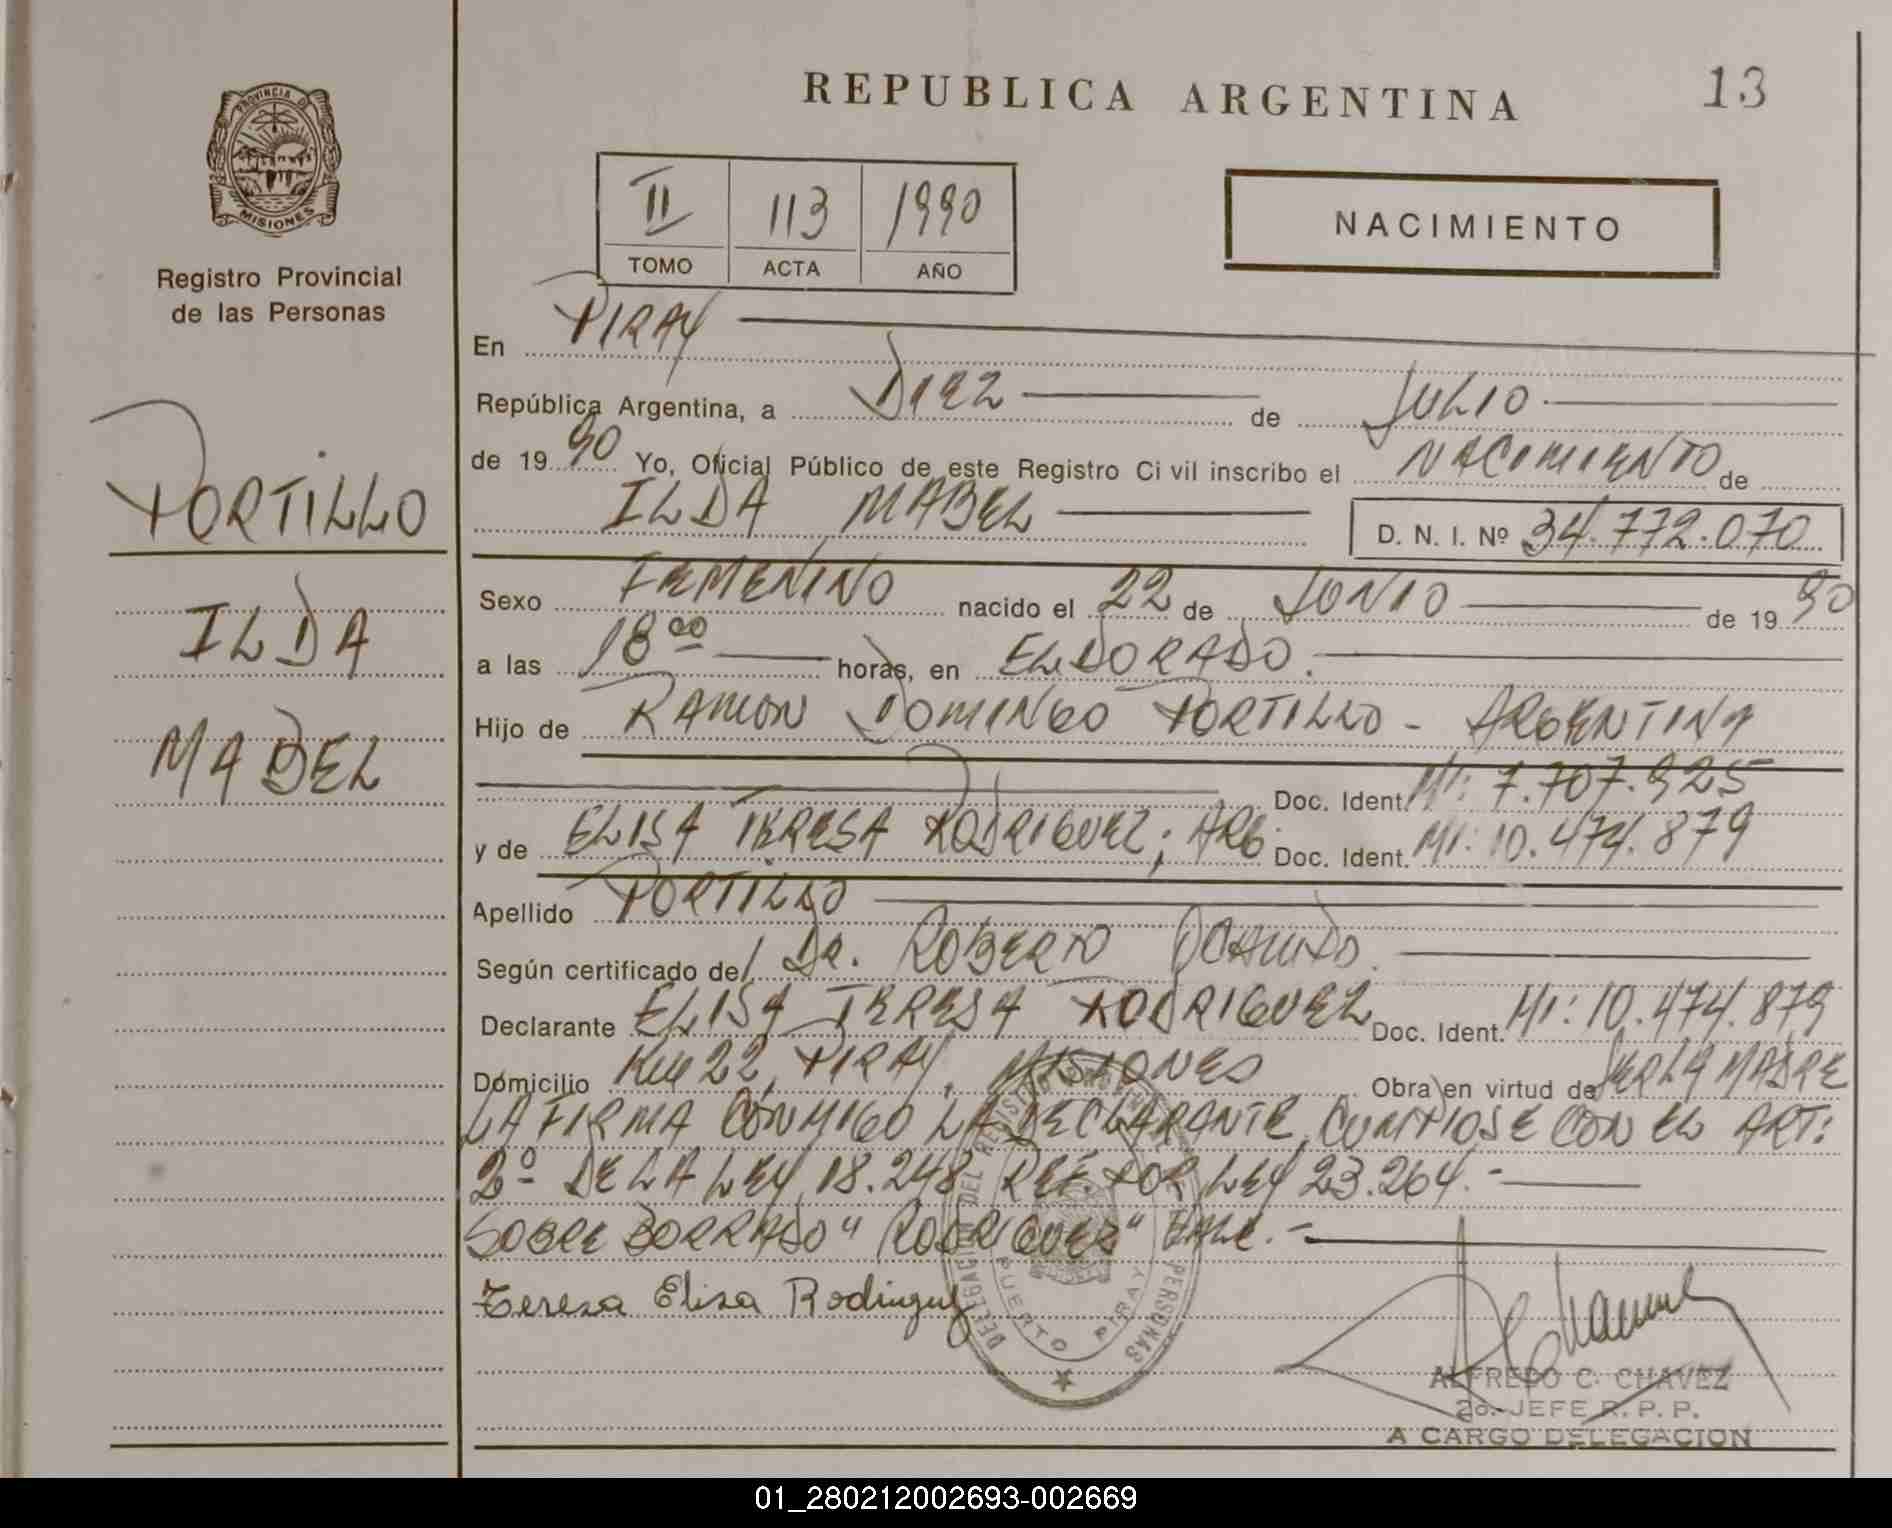 REPUBLICA ARGENTINA
13
PROVINCIA DE
MISIONES
Registro Provincial
de las Personas
II 113 1990
TOMO ACTA AÑO
NACIMIENTO
PORTILLO
ILDA
MABEL
En PIRAY
República Argentina, a DIEZ de JULIO
de 1990 Yo, Oficial Público de este Registro Civil inscribo el NACIMIENTO de
ILDA MABEL D. N. I. Nº 34.772.070
Sexo FEMENINO nacido el 22 de JUNIO de 1990
a las 18 00 horas, en ELDORADO.
Hijo de RAMON DOMINGO PORTILLO - ARGENTINA
Doc. Ident. MI: 7.707.925
y de ELISA TERESA RODRIGUEZ; ARG. Doc. Ident. MI: 10.474.879
Apellido PORTILLO
Según certificado del DR. ROBERTO
Declarante ELISA TERESA RODRIGUEZ Doc. Ident. MI: 10.474.879
Domicilio Km 22, PIRAY, MISIONES Obra en virtud de SER LA MADRE
LA FIRMA CONMIGO LA DECLARANTE, CUMPLIOSE CON EL ART:
2º DE LA LEY 18.248 REF. POR LEY 23.264.-
SOBRE BORRADO "RODRIGUEZ" VALE.-
Teresa Elisa Rodriguez
DELEGACION DEL REGISTRO PROVINCIAL DE LAS PERSONAS
PUERTO PIRAY
ALFREDO C. CHAVEZ
2o. JEFE R. P. P.
A CARGO DELEGACION
01_280212002693-002669